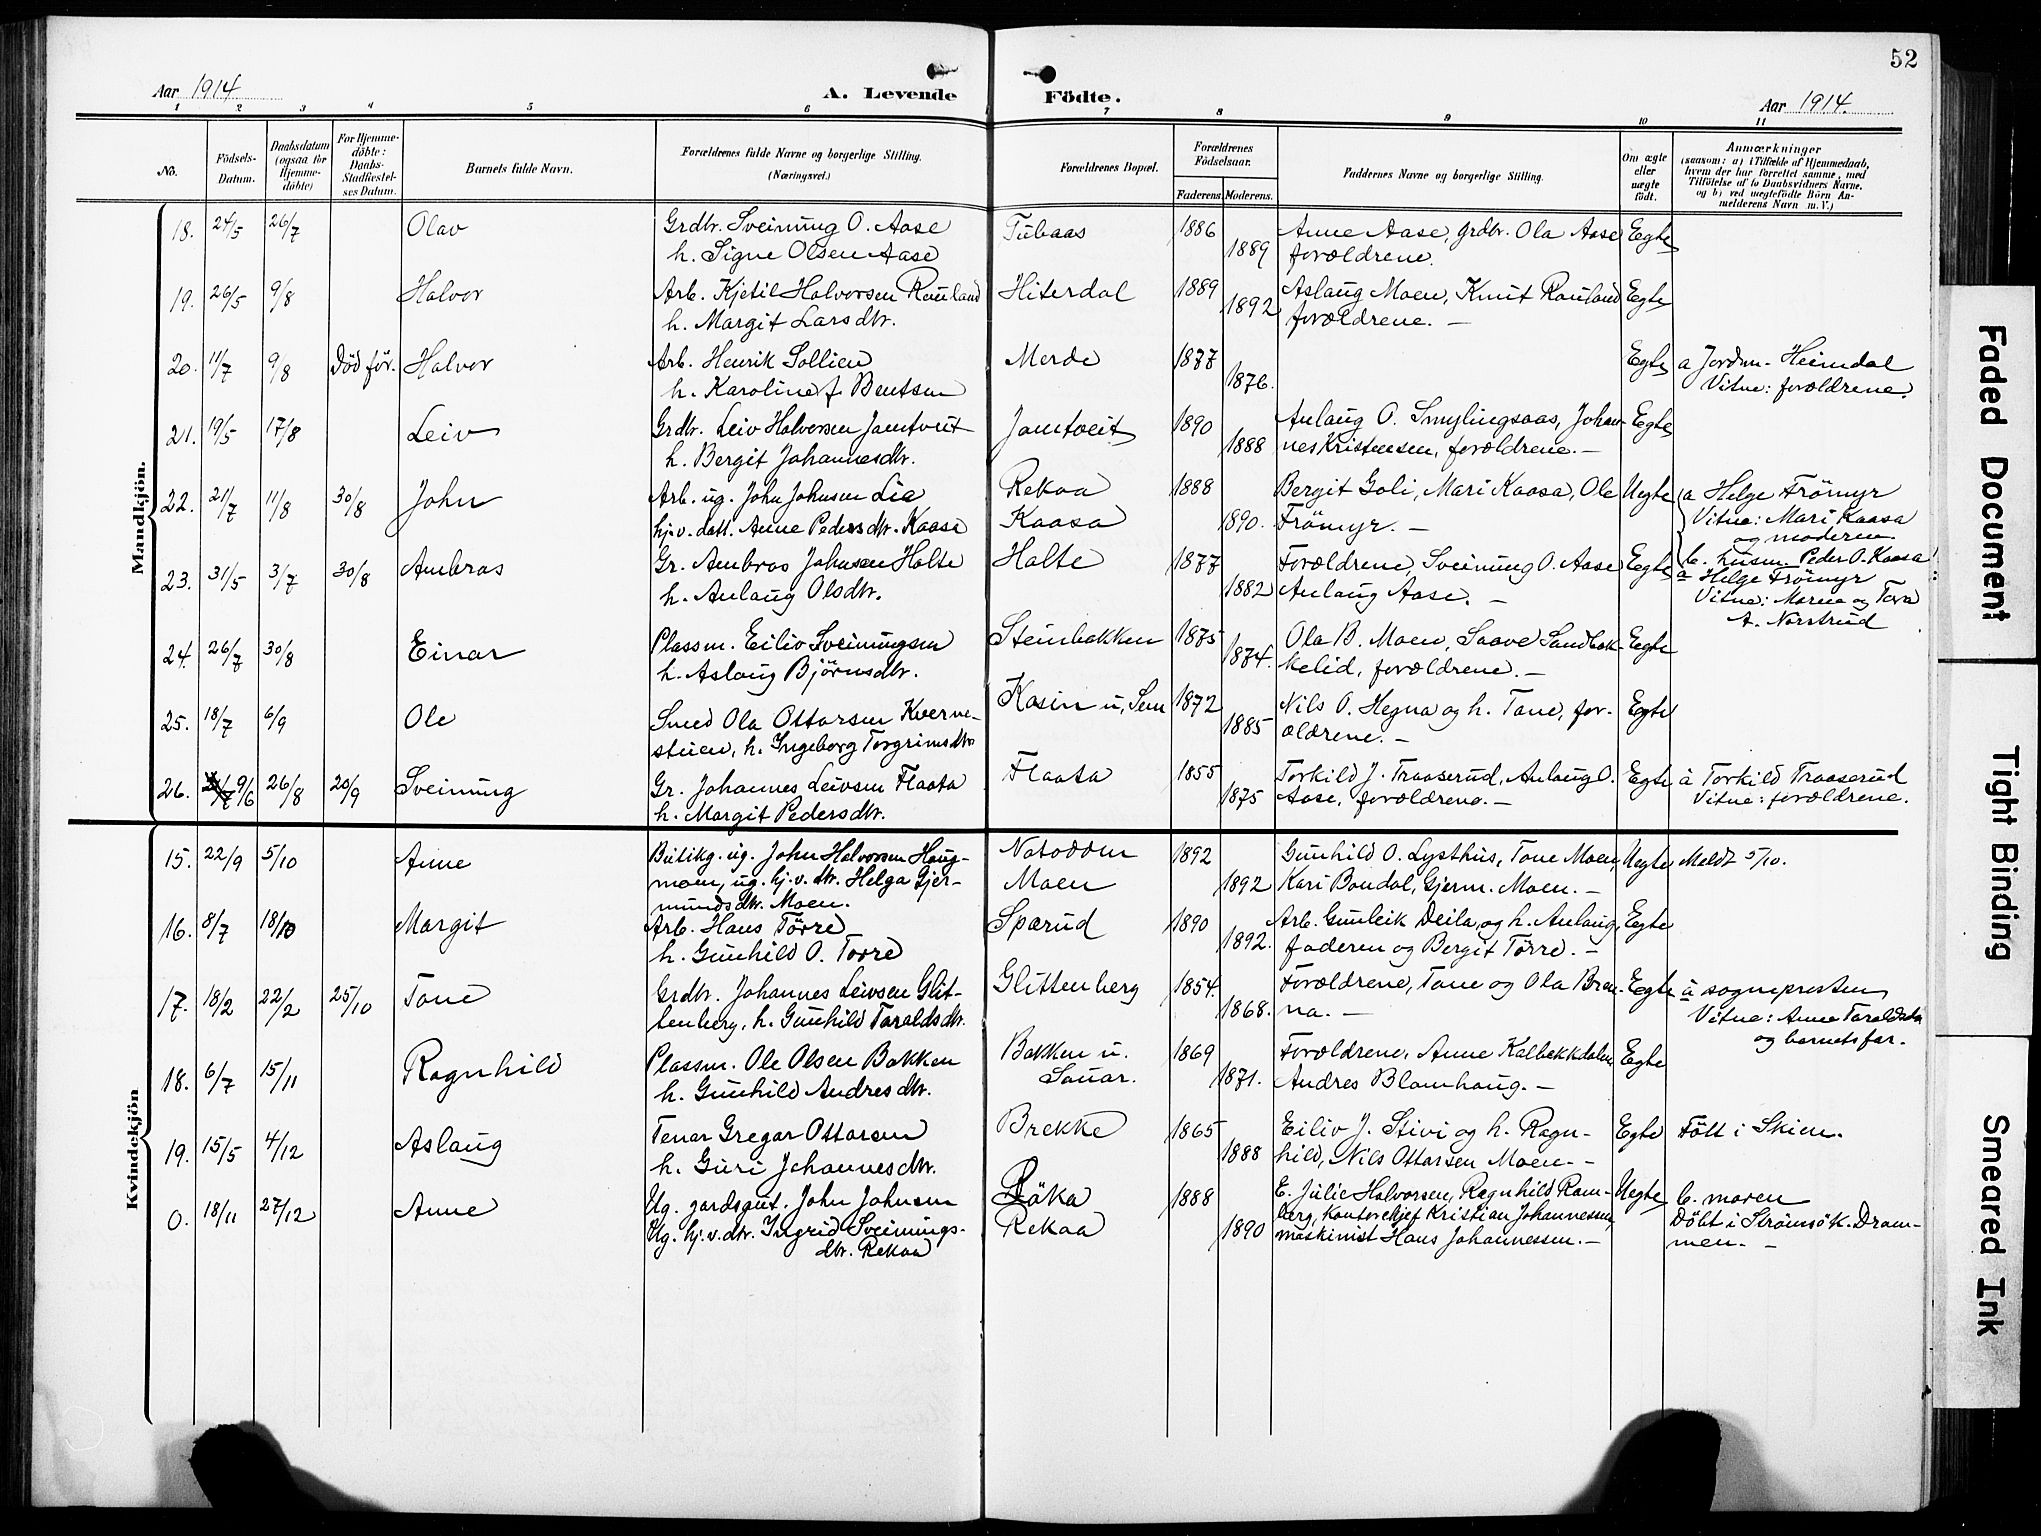 52
Aar 1914
A. Levende
Födte.
Aar 1914.
1 2 3 4 5 6 7 8 9 10 11
No.
Födsels-
Datum.
Daabsdatum
(ogsaa for
Hjemme-
döbte)
For Hjemme-
döbte:
Daabs-
Stadfæstel-
ses Datum.
Barnets fulde Navn.
Forældrenes fulde Navne og borgerlige Stilling.
(Næringsvei.)
Forældrenes Bopæl.
Forældrenes
Födselsaar.
Faderens.
Moderens.
Faddernes Navne og borgerlige Stilling.
Om ægte
eller
uægte
födt.
Anmærkninger
(saasom: a) i Tilfælde af Hjemmedaab,
hvem der har forrettet samme, med
Tilföielse af to Daabsvidners Navne,
og b) ved uægtefödte Börn An-
melderens Navn m. V.)
Mandkjön.
18. 24/5 26/7 Olav Grdbr. Sveinung O. Aase Tubaas 1886 Anne Aase, grdbr. Ola Aase Egte
h. Signe Olsen Aase 1889 forældrene.
19. 26/5 9/8 Halvor Arb. Kjetil Halvorsen Rauland Hiterdal 1889 Aslaug Moen, Knut Rauland Egte
h. Margit Larsdtr. 1892 forældrene. —
20. 11/7 9/8 Död för. Halvor Arb. Henrik Sollien Merde 1877 Egte a Jordm. Heimdal
h. Karoline f. Bentsen 1876. Vitne: forældrene.
21. 19/5 17/8 Leiv Grdbr. Leiv Halvorsen Jamtveit Jamtveit 1890 Anlaug O. Smylingsaas, Johan- Egte
h. Bergit Johannesdtr. 1888 nes Kristensen, forældrene. —
22. 21/7 11/8 30/8 John Arb. ug. John Johnsen Lia Rekaa 1888 Bergit Goli, Mari Kaasa, Ole Uegte a Helge Frömyr
hj.v. datt. Anne Pedersdtr. Kaasa Kaasa 1890. Frömyr. — Vitne: Mari Kaasa
og moderen
b. husm. Peder O. Kaasa
23. 31/5 3/7 30/8 Ambros Gr. Ambros Johnsen Holte Holte 1877 Forældrene, Sveinung O. Aase Egte a Helge Frömyr
h. Anlaug Olsdtr. 1882 Anlaug Aase. — Vitne: Maren og Tora
A. Nörstrud
24. 26/7 30/8 Einar Plassm. Eiliv Sveinungsen Steinbakken 1875 Ola B. Moen, Saave Sandbak- Egte
h. Aslaug Björnsdtr. 1874. kelid, forældrene. —
25. 18/7 6/9 Ole Smed Ola Ottarsen Kverne- Kasin u. Sem 1872 Nils O. Hegna og h. Tone, for- Egte
stuen, h. Ingeborg Torgrimsdtr 1885 ældrene. —
26. 9/6 26/8 20/9 Sveinung Gr. Johannes Leivsen Flaata Flaata 1855 Torkild J. Traaserud, Anlaug O. Egte a Torkild Traaserud
h. Margit Pedersdtr. 1875 Aase, forældrene. — Vitne: forældrene.
Kvindekjön
15. 22/9 5/10 Anne Butikg. ug. John Halvorsen Haug- Notodden 1892 Gunhild O. Lysthus, Tone Moen, Uegte Meldt 5/10.
moen, ug. hj.v. dtr. Helga Gjer- Moen 1892 Kari Bondal, Gjerm. Moen. —
mundsdtr. Moen.
16. 8/7 18/10 Margit Arb. Hans Törre Sparud 1890 Arb. Gunleik Deila og h. Anlaug, Egte
h. Gunhild O. Torre 1892. faderen og Bergit Törre. —
17. 18/2 22/2 25/10 Tone Grdbr. Johannes Leivsen Glit- Glittenberg 1854. Forældrene, Tone og Ola Bræn- Egte a sognepresten
tenberg, h. Gunhild Taraldsdtr. 1868. na. — Vitne: Anne Taraldsdtr
og barnets far.
18. 6/7 15/11 Ragnhild Plassm. Ole Olsen Bakken Bakken u. 1869 Forældrene, Anne Kalbekkdalen Egte
h. Gunhild Andresdtr. Sauar. 1871. Andres Blomhaug. —
19. 15/5 4/12 Aslaug Tenar Gregar Ottarsen Brekke 1865 Eiliv J. Stivi og h. Ragn- Egte Fött i Skien.
h. Guri Johannesdtr. 1888 hild, Nils Ottarsen Moen. —
0. 18/11 27/12 Anne Ug. gardsgut. John Johnsen Röka 1888 E. Julie Halvorsen, Ragnhild Ram- Uegte b. moren
Ug. hj.v. dtr. Ingrid Sveinungs- Rekaa 1890 berg, kontorchef Kristian Johannessen Döbt i Strömsö k. Dram-
dtr. Rekaa maskinist Hans Johannessen. — men. —
Faded Document
Tight Binding
Smeared Ink